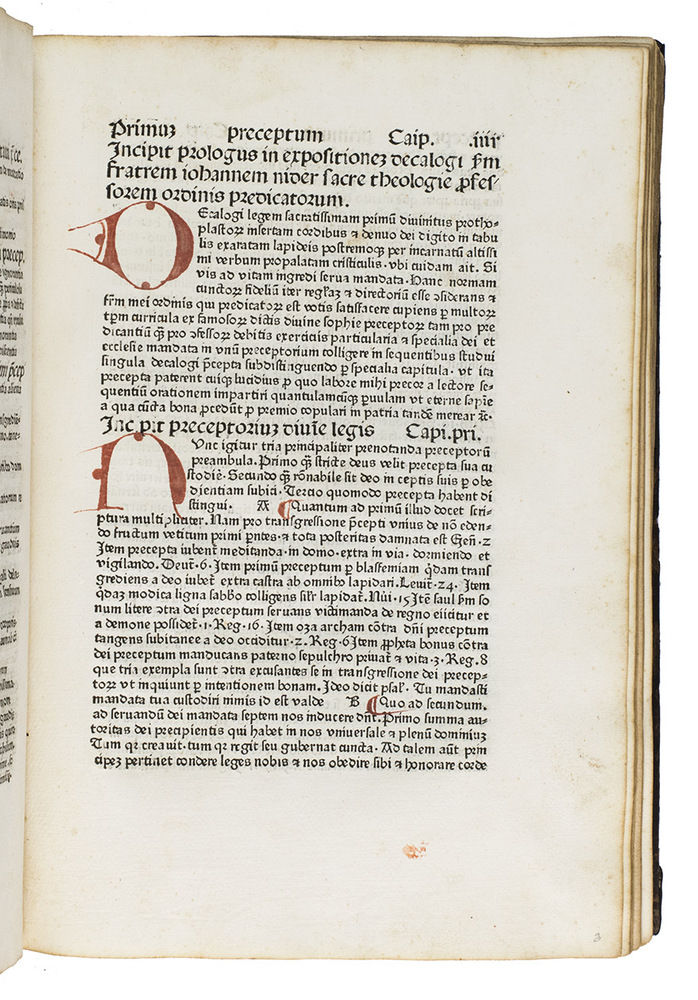 Primuz preceptum Caip. .iiii
Incipit prologus in expositionez decalogi ẜm
fratrem iohannem nider sacre theologie ꝓfes-
sorem ordinis predicatorum.
DEcalogi legem sacratissimam primū divinitus protho-
plastoꝝ insertam cordibus ⁊ denuo dei digito in tabu
lis exaratam lapideis postremoqꝫ per incarnatū altissi
mi verbum propalatam cristicolis. vbi cuidam ait. Si
vis ad vitam ingredi serua mandata. Hanc normam
cunctoꝝ fideliū iter reglaꝫ ⁊ directoriū esse ↄsiderans ⁊
frm mei ordinis qui predicatoꝝ est votis satisfacere cupiens ꝑ multoꝝ
tꝑm curricula ex famosoꝝ dictis divine sophie preceptoꝝ tam pro pre
dicantiū qꝫ pro ↄfessoꝝ debitis exerciciis particularia ⁊ specialia dei et
ecclesie mandata in vnū preceptorium colligere in sequentibus studui
singula decalogi p̄cepta subdistinguendo ꝑ specialia capitula. vt ita
precepta paterent cuiqꝫ lucidius ꝓ quo labore mihi precor a lectore se-
quentiū orationem impartiri quantulamcūqꝫ ꝑuulam vt eterne sopīe
a qua cūcta bona ꝓcedūt ꝓ premio copulari in patria tandē merear ⁊c.
Inc pit preceptoriuz diuīe legis Capi.pri.
NVnc igitur tria principaliter prenotanda preceptorū
preambula. Primo qꝫ stricte deus velit precepta sua cu
stodiē. Secundo qꝫ rōnabile sit deo in ceptis suis ꝑ obe
dientiam subici. Tercio quomodo precepta habent di
stingui. A Quantum ad primū illud docet scri-
ptura multipliciter. Nam pro transgressione p̄cepti vnius de nō eden-
do fructum vetitum primi pn̄tes ⁊ tota posteritas damnata est Gen̄. 2
Item precepta iubent meditanda in domo. extra in via. dormiendo et
vigilando. Deut̄. 6. Item primū preceptum ꝑ blasfemiam qdam trans
grediens a deo iubet̄ extra castra ab omnibꝫ lapidari. Leuit̄. 24. Item
qdaꝫ modica ligna sabbo colligens silr lapidat̄. Nūi. 15 Itē saul ẜm so
num litere ↄtra dei preceptum seruans victimanda de regno eiicitur et
a demone possidet̄. 1. Reg. 16. Item oza archam cōtra dn̄i preceptum
tangens subitanee a deo occiditur. 2. Reg. 6 Item ꝓpheta bonus cōtra
dei preceptum manducans paterno sepulchro priuat̄ ⁊ vita. 3. Reg. 8
que tria exempla sunt ↄtra excusantes se in transgressione dei precep-
toꝝ vt inquiunt ꝑ intentionem bonam. Ideo dicit psal. Tu mandasti
mandata tua custodiri nimis id est valde B Quo ad secundum.
ad seruandū dei mandata septem nos inducere dn̄t. Primo summa au-
toritas dei precipientis qui habet in nos vniuersale ⁊ plenū dominiuꝫ
Tum qꝛ creauit. tum qꝛ regit seu gubernat cuncta. Ad talem aut̄ prin
cipeꝫ pertinet condere leges nobis ⁊ nos obedire sibi ⁊ honorare corde
3